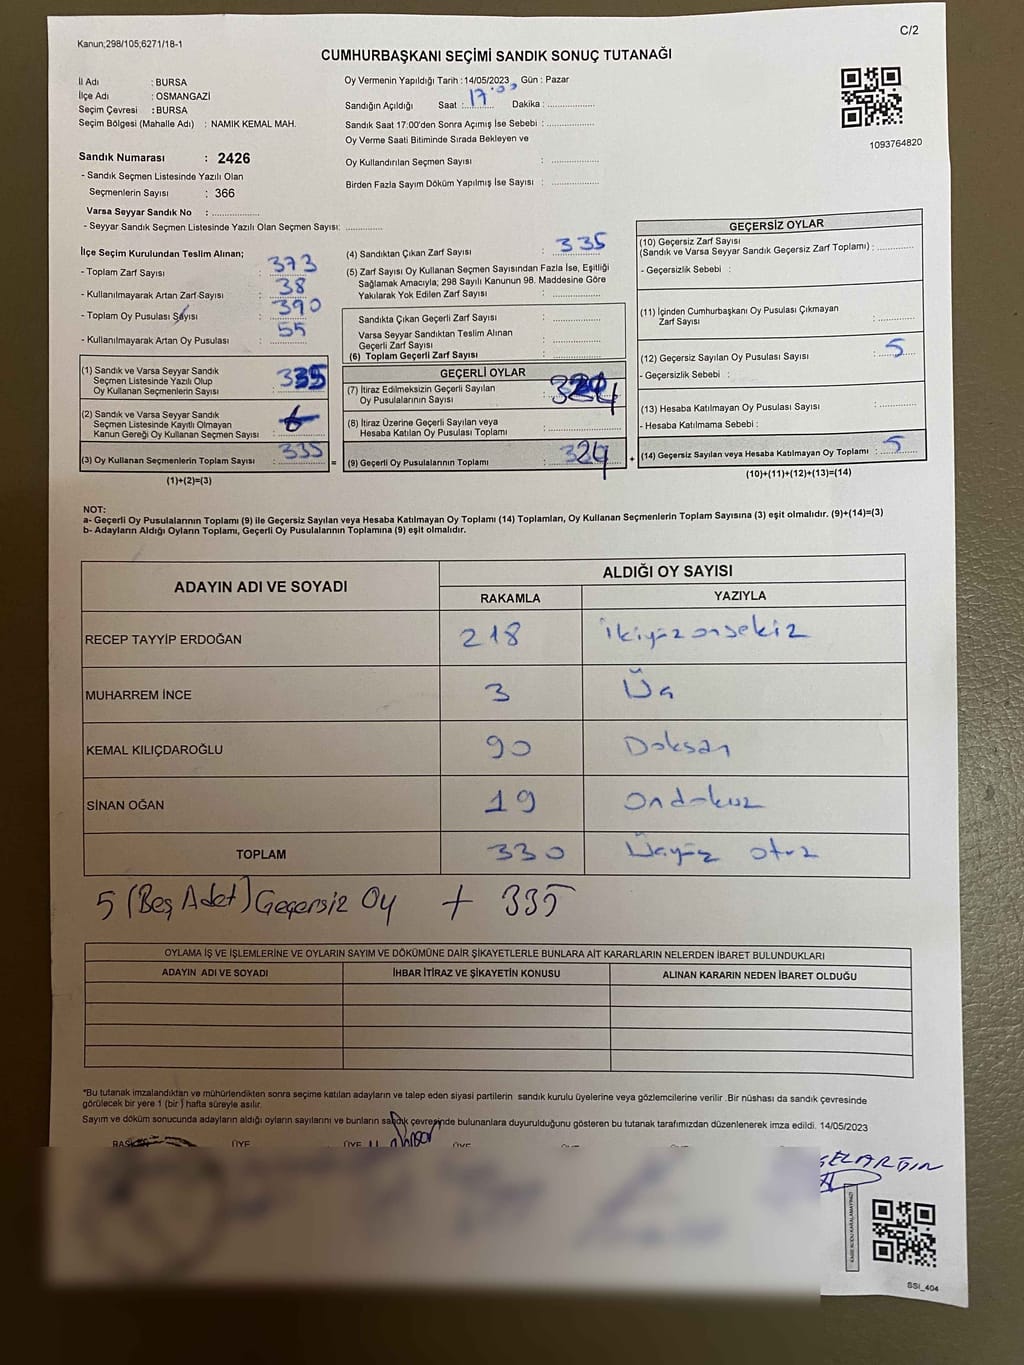 Kanun;298/105;6271/18-1
C/2
CUMHURBAŞKANI SEÇİMİ SANDIK SONUÇ TUTANAĞI
İl Adı : BURSA
İlçe Adı : OSMANGAZİ
Seçim Çevresi : BURSA
Seçim Bölgesi (Mahalle Adı) : NAMIK KEMAL MAH.
Sandık Numarası : 2426
- Sandık Seçmen Listesinde Yazılı Olan
Seçmenlerin Sayısı : 366
Varsa Seyyar Sandık No : ................
- Seyyar Sandık Seçmen Listesinde Yazılı Olan Seçmen Sayısı: ............
Oy Vermenin Yapıldığı Tarih :14/05/2023 Gün : Pazar
Sandığın Açıldığı Saat : 17:00 Dakika : ...............
Sandık Saat 17:00'den Sonra Açımış İse Sebebi : ...............
Oy Verme Saati Bitiminde Sırada Bekleyen ve
Oy Kullandırılan Seçmen Sayısı : ...............
Birden Fazla Sayım Döküm Yapılmış İse Sayısı : ...............
1093764820
İlçe Seçim Kurulundan Teslim Alınan;
- Toplam Zarf Sayısı : 373
- Kullanılmayarak Artan Zarf Sayısı : 38
- Toplam Oy Pusulası Sayısı : 390
- Kullanılmayarak Artan Oy Pusulası : 55
(1) Sandık ve Varsa Seyyar Sandık
Seçmen Listesinde Yazılı Olup
Oy Kullanan Seçmenlerin Sayısı : 335
(2) Sandık ve Varsa Seyyar Sandık
Seçmen Listesinde Kayıtlı Olmayan
Kanun Gereği Oy Kullanan Seçmen Sayısı :
(3) Oy Kullanan Seçmenlerin Toplam Sayısı : 335
(1)+(2)=(3)
=
(4) Sandıktan Çıkan Zarf Sayısı : 335
(5) Zarf Sayısı Oy Kullanan Seçmen Sayısından Fazla İse, Eşitliği
Sağlamak Amacıyla; 298 Sayılı Kanunun 98. Maddesine Göre
Yakılarak Yok Edilen Zarf Sayısı : ...............
Sandıkta Çıkan Geçerli Zarf Sayısı : ...............
Varsa Seyyar Sandıktan Teslim Alınan
Geçerli Zarf Sayısı : ...............
(6) Toplam Geçerli Zarf Sayısı : ...............
GEÇERLİ OYLAR
(7) İtiraz Edilmeksizin Geçerli Sayılan
Oy Pusulalarının Sayısı :
(8) İtiraz Üzerine Geçerli Sayılan veya
Hesaba Katılan Oy Pusulası Toplamı : ...............
(9) Geçerli Oy Pusulalarının Toplamı : 324
+
GEÇERSİZ OYLAR
(10) Geçersiz Zarf Sayısı
(Sandık ve Varsa Seyyar Sandık Geçersiz Zarf Toplamı) : ............
- Geçersizlik Sebebi :
(11) İçinden Cumhurbaşkanı Oy Pusulası Çıkmayan
Zarf Sayısı : ............
(12) Geçersiz Sayılan Oy Pusulası Sayısı : 5
- Geçersizlik Sebebi :
(13) Hesaba Katılmayan Oy Pusulası Sayısı : ............
- Hesaba Katılmama Sebebi :
(14) Geçersiz Sayılan veya Hesaba Katılmayan Oy Toplamı : 5
(10)+(11)+(12)+(13)=(14)
NOT:
a- Geçerli Oy Pusulalarının Toplamı (9) ile Geçersiz Sayılan veya Hesaba Katılmayan Oy Toplamı (14) Toplamları, Oy Kullanan Seçmenlerin Toplam Sayısına (3) eşit olmalıdır. (9)+(14)=(3)
b- Adayların Aldığı Oyların Toplamı, Geçerli Oy Pusulalarının Toplamına (9) eşit olmalıdır.
ADAYIN ADI VE SOYADI ALDIĞI OY SAYISI
RAKAMLA YAZIYLA
RECEP TAYYİP ERDOĞAN 218 ikiyüzonsekiz
MUHARREM İNCE 3 Üç
KEMAL KILIÇDAROĞLU 90 Doksan
SİNAN OĞAN 19 Ondokuz
TOPLAM 330 Üçyüz otuz
5 (Beş Adet) Geçersiz Oy + 335
OYLAMA İŞ VE İŞLEMLERİNE VE OYLARIN SAYIM VE DÖKÜMÜNE DAİR ŞİKAYETLERLE BUNLARA AİT KARARLARIN NELERDEN İBARET BULUNDUKLARI
ADAYIN ADI VE SOYADI İHBAR İTİRAZ VE ŞİKAYETİN KONUSU ALINAN KARARIN NEDEN İBARET OLDUĞU
*Bu tutanak imzalandıktan ve mühürlendikten sonra seçime katılan adayların ve talep eden siyasi partilerin sandık kurulu üyelerine veya gözlemcilerine verilir .Bir nüshası da sandık çevresinde
görülecek bir yere 1 (bir ) hafta süreyle asılır.
Sayım ve döküm sonucunda adayların aldığı oyların sayılarını ve bunların sandık çevresinde bulunanlara duyurulduğunu gösteren bu tutanak tarafımızdan düzenlenerek imza edildi. 14/05/2023
ÜYE ÜYE ÜYE
SSI_404